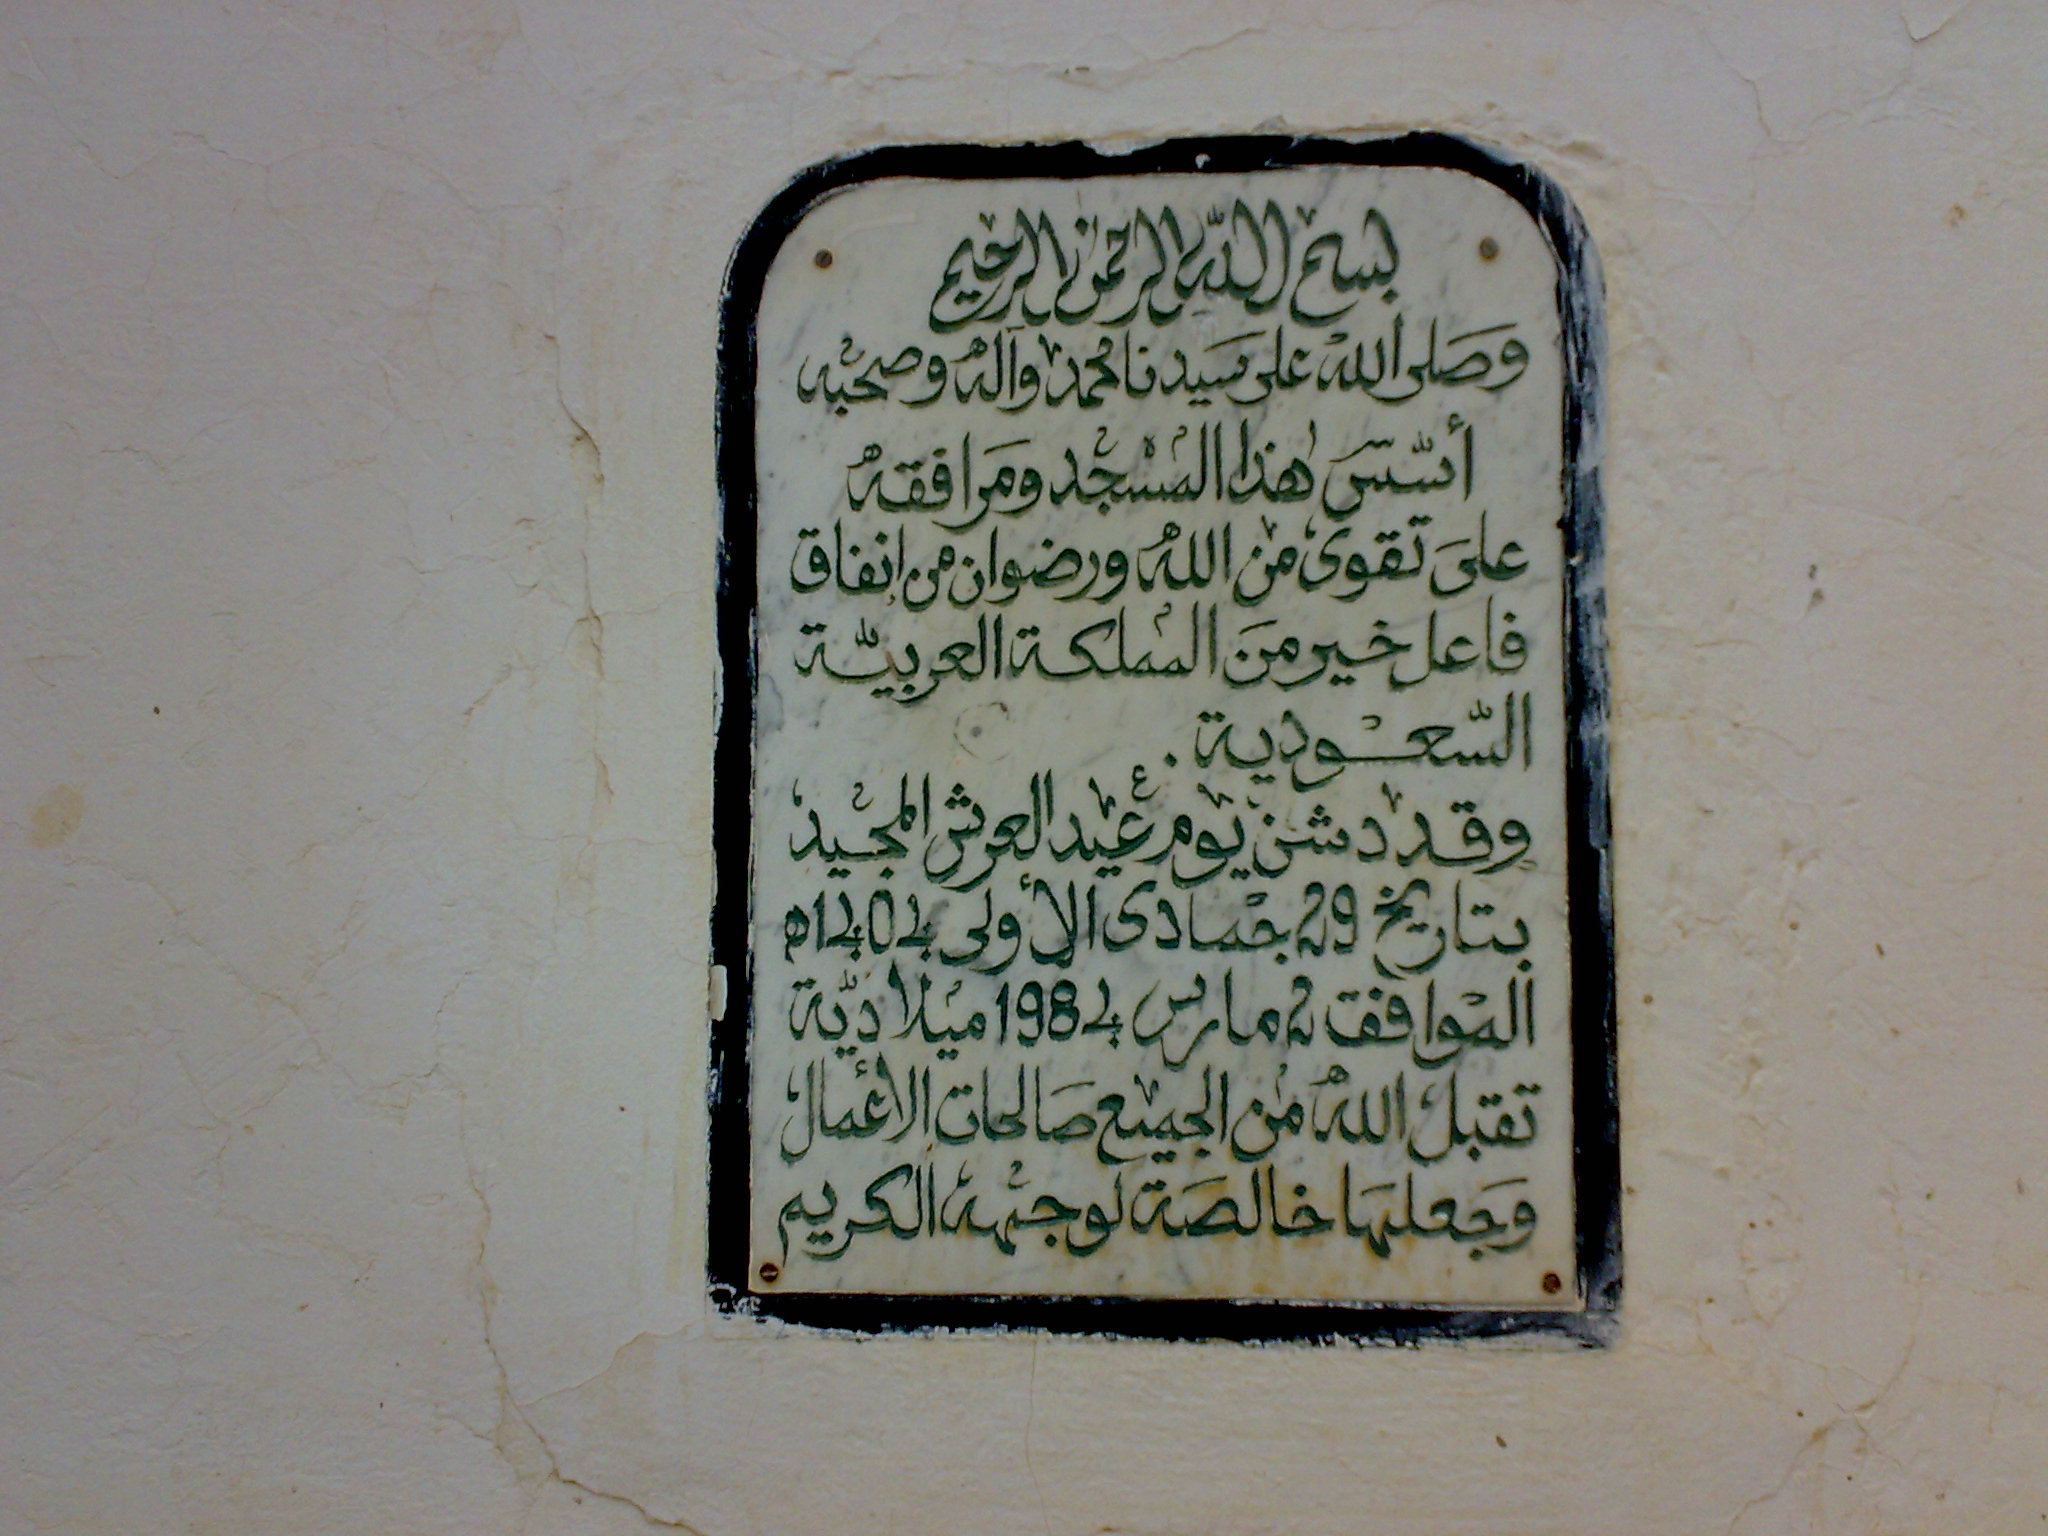 بسم الله الرحمن الرحيم
وصَلى الله على سَيدنا محمد وآله وصحبه
أسّسَ هٰذا المسْجْد ومَرافقهُ
علىَ تقوىٰ منْ اللهُ ورضوان من إنفاق
فاعل خير منَ المملكة العربيّة
السّعودية .
وقد دشن يوم عيد العرش المجيد
بتاريخ 29 جمادى الأولى 1404ه
الموافق 2 مارس 1984 ميلاديّة
تقبل اللهُ من الجميع صَالحات الأعمال
وَجَعلهَا خالصَة لوجهه الكريم